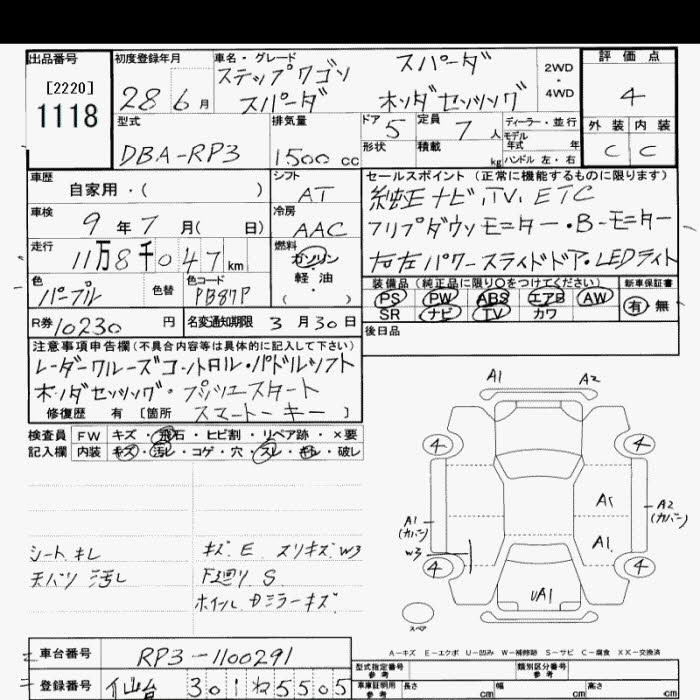 出品番号
[2220]
1118
初度登録年月
28 6 月
車名・グレード
ステップワゴン スパーダ
スパーダ ホンダセンシング
2WD
・
4WD
評価点
4
外装 内装
C C
型式
DBA-RP3
排気量
1500 cc
ドア 5
定員 7 人
形状
積載 kg
ディーラー・並行
モデル
年式 年
ハンドル 左・右
車歴
自家用・( )
シフト
AT
車検
9 年 7 月( 日)
冷房
AAC
走行
11万8千047 km
燃料
ガソリン
軽油
( ・ )
色
パープル
色替
色コード
PB87P
R券 10230 円
名変通知期限 3 月 30 日
セールスポイント (正常に機能するものに限ります)
純正ナビ,TV,ETC
フリップダウンモニター・B-モニター
右左パワースライドドア・LEDライト
装備品 (純正品に限り○をつけてください)
PS PW ABS エアB AW
SR ナビ TV カワ
新車保証書
有 無
後日品
注意事項申告欄(不具合内容等は具体的に記入して下さい)
レーダークルーズコントロール・パドルシフト
ホンダセンシング・プッシュスタート
スマートーキー
修復歴 有 [箇所 ]
検査員
記入欄
FW キズ・飛石・ヒビ割・リペア跡・×要
内装 キズ・汚レ・コゲ・穴・スレ・キレ・破レ
シート キレ
天バリ 汚し
キズ E スリキズ W3
下廻り S
ホイール ドミラーキズ
A1 A2
4 4
A1
A1
(カバー)
W3
A1
A2
(カバー)
4 4
UA1
スペア
A-キズ E-エクボ U-凹み W-補修跡 S-サビ C-腐食 XX-交換済
車台番号 RP3-1100291
登録番号 仙台 301 ね 5505
型式指定番号
参考
類別区分番号
参考
車庫証明用
参考
長さ cm 幅 cm 高さ cm